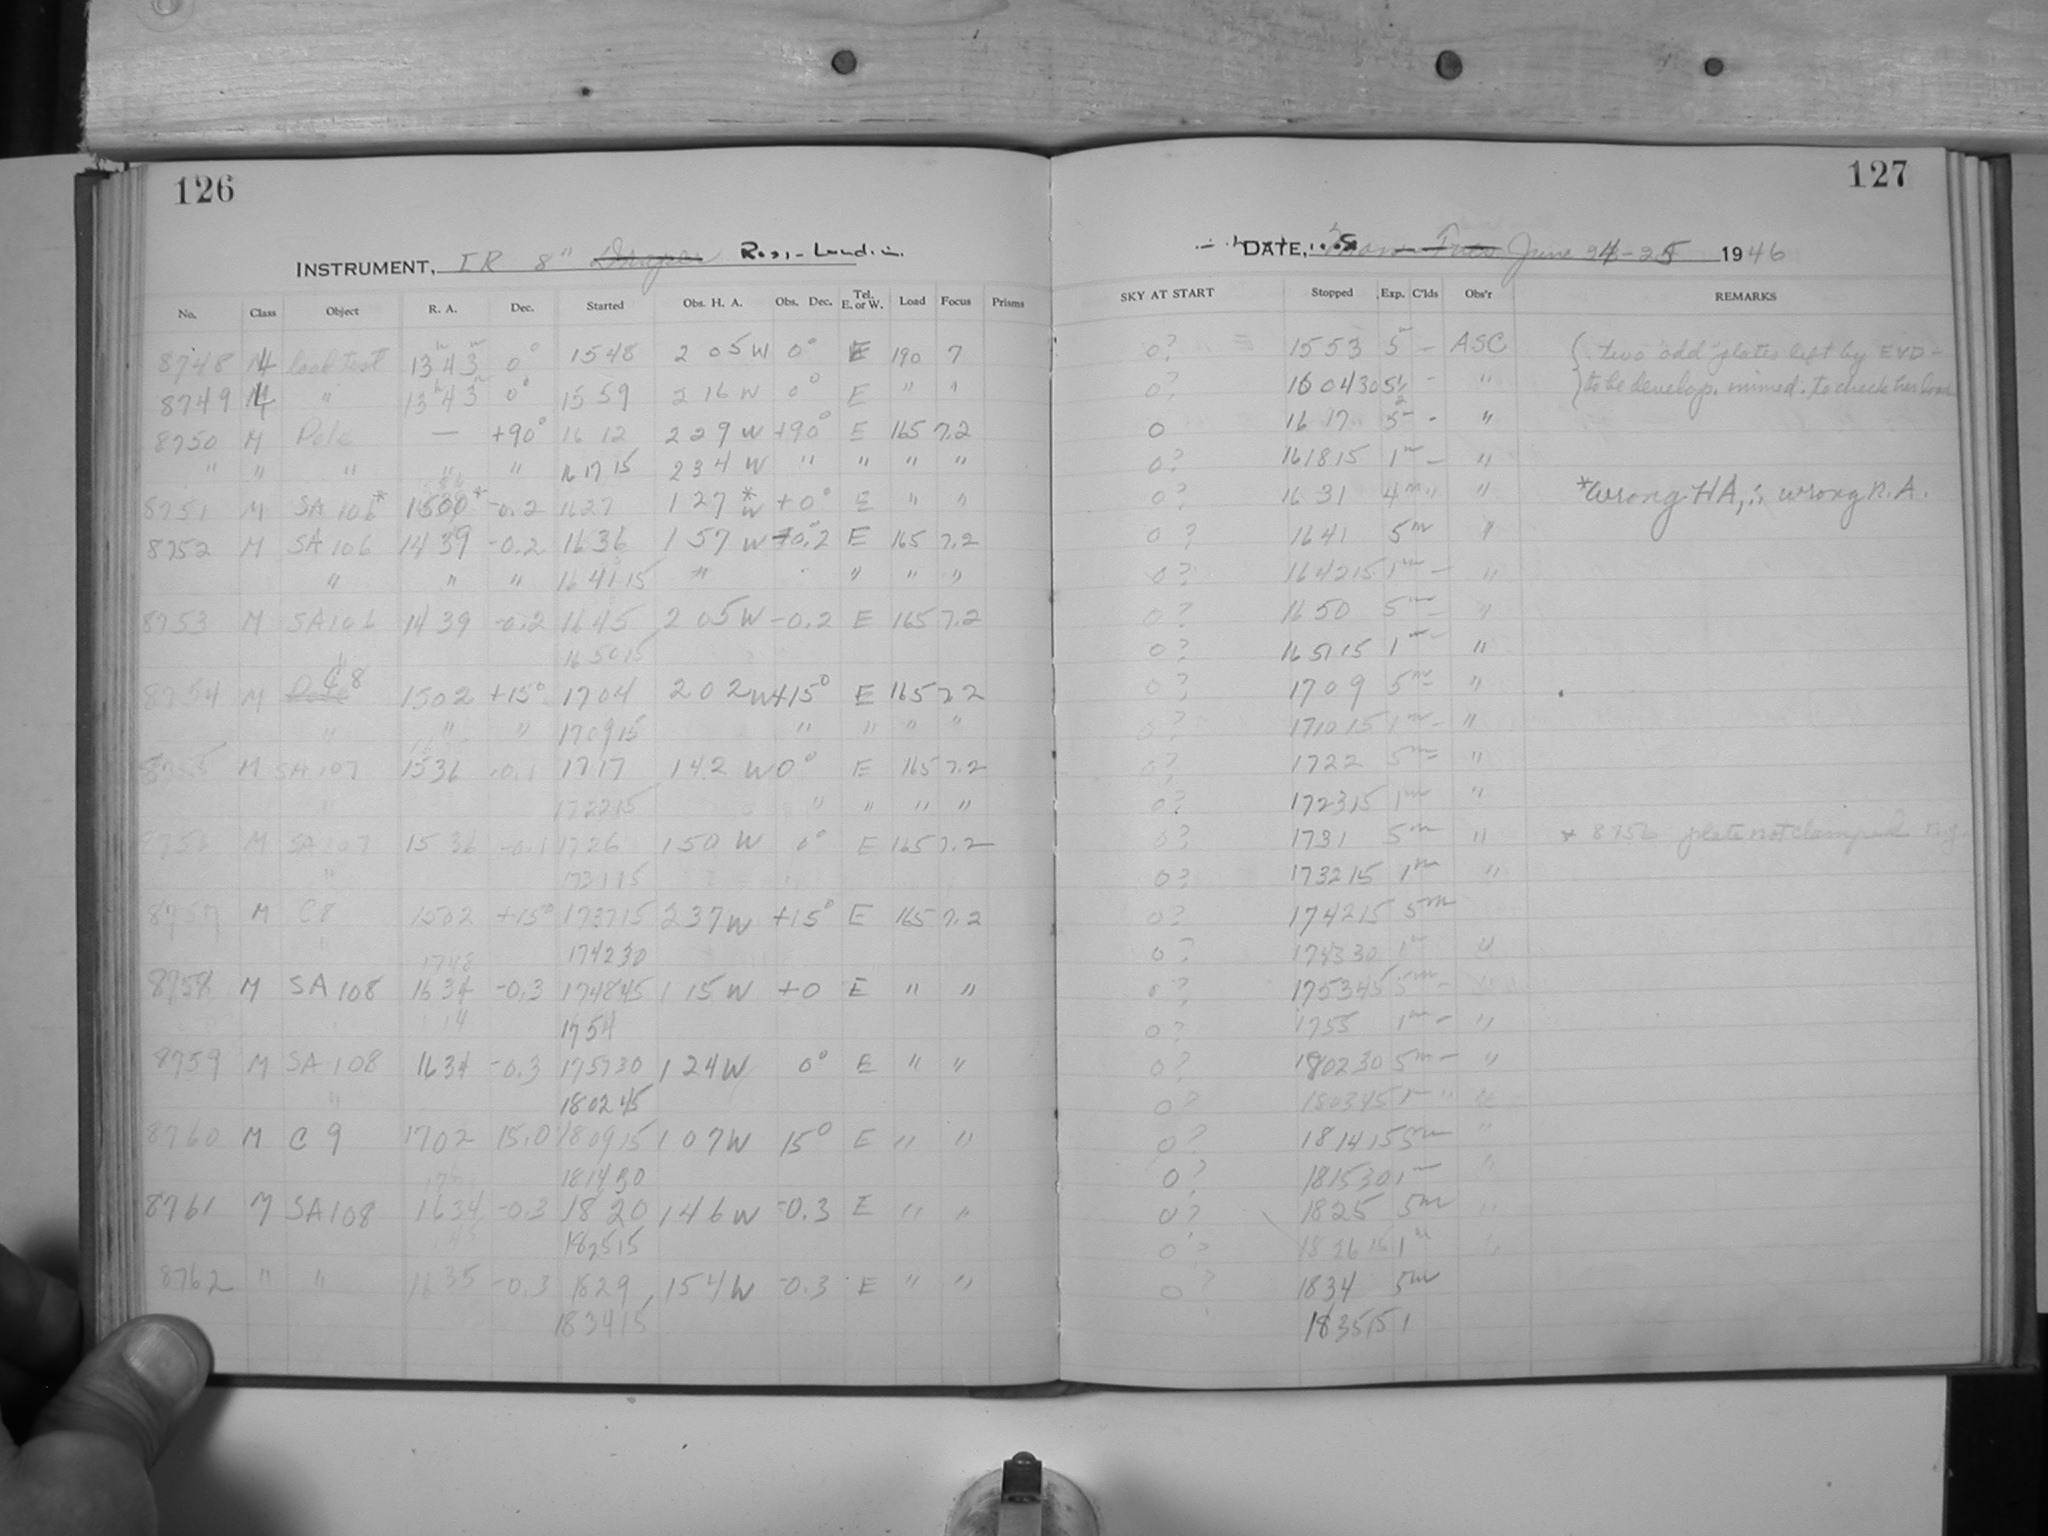 126
127
INSTRUMENT, IR 8" Draper Ross-Lundin
DATE, June 24-25 1946
No. Class Object R. A. Dec. Started Obs. H. A. Obs. Dec. Tel. E. or W. Load Focus Prisms SKY AT START Stopped Exp. C'lds Obs'r REMARKS
8748 M 1343 0° 1548 2 05 W 0° E 190 7 0? 1553 5 - ASC two "odd" plates left by EVD -
8749 M " 1343 0° 1559 2 16 W 0° E " " 0? 160430 5½ - " to be develop. immed. to check
8750 M Pole — +90° 1612 2 29 W +90° E 165 7.2 0 1617 5m - "
" " " " " 161715 2 34 W " " " " 0? 161815 1m - "
8751 M SA 106* 1500* -0.2 1627 1 27* W +0° E " " 0? 1631 4m " " *wrong HA, ∴ wrong R.A.
8752 M SA 106 1439 -0.2 1636 1 57 W -0.2 E 165 7.2 0? 1641 5m "
" " " 164115 " " " " 0? 164215 1m - "
8753 M SA106 1439 -0.2 1645 2 05 W -0.2 E 165 7.2 0? 1650 5m "
165015 0? 165115 1m "
8754 M C8 1502 +15° 1704 2 02 W +15° E 165 7.2 0? 1709 5m "
" " " 170915 " " " " 0? 171015 1m - "
8755 M SA107 1536 -0.1 1717 1 42 W 0° E 165 7.2 0? 1722 5m "
" 172215 " " " " 0? 172315 1m "
8756 M SA107 1536 -0.1 1726 1 50 W 0° E 165 7.2 0? 1731 5m " * 8756 plate not clamped n.g.
" 173115 0? 173215 1m "
8757 M C8 1502 +15° 173715 2 37 W +15° E 165 7.2 0? 174215 5m
" 174230 0? 174330 1m "
8758 M SA 108 1634 -0.3 174845 1 15 W +0 E " " 0? 175345 5m - "
1754 0? 1755 1m - "
8759 M SA 108 1634 -0.3 175730 1 24 W 0° E " " 0? 180230 5m - "
" 180245 0? 180345 1m " "
8760 M C 9 1702 15.0 180915 1 07 W 15° E " " 0? 181415 5m "
181430 0? 181530 1m "
8761 M SA108 1634 -0.3 1820 1 46 W -0.3 E " " 0? 1825 5m "
182515 0? 182615 1m "
8762 " " 1635 -0.3 1829 1 54 W -0.3 E " " 0? 1834 5m
183415 183515 1